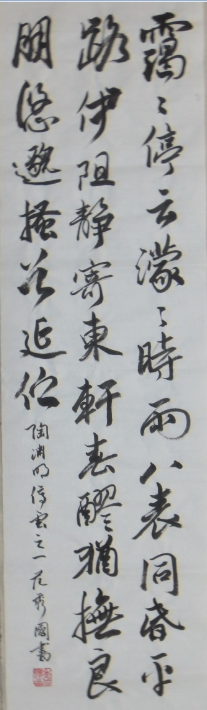 靄〻停云濛〻時雨八表同昏平
路伊阻靜寄東軒春醪獨撫良
朋悠邈搔首延伫
陶渊明停雲之一范秀國書